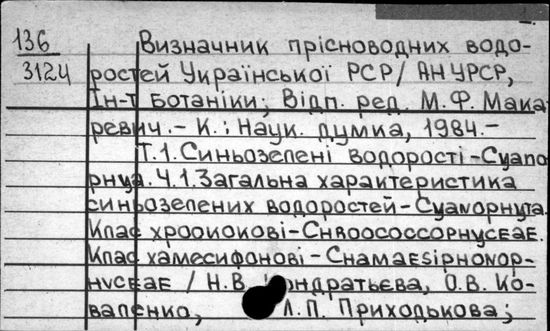 136 Визначник прісноводних водо-
3124 ростей Української РСР/ АН УРСР,
Ін-т Ботаніки; Відп. ред. М.Ф. Мака
ревич.- К.: Наук. думка, 1984.-
Т.1. Синьозелені водорості - Cyano
phyta. Ч.1. Загальна характеристика
синьозелених водоростей - Cyanophyta.
Клас хроококові - Chroococcophyceae.
Клас хамесифонові - Chamaesiphonop-
hyceae / Н.В. Кондратьєва, О.В. Ко-
валенко, Л.П. Приходькова;